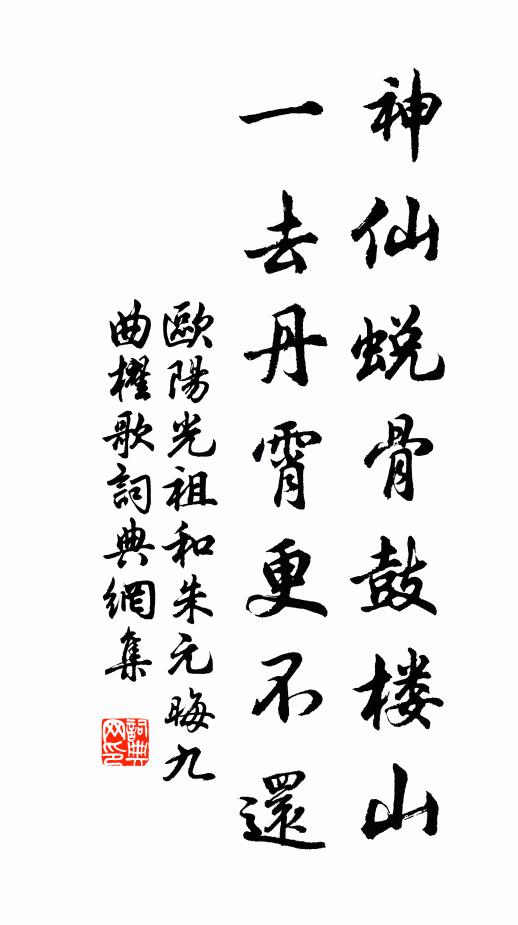 神仙蜕骨鼓楼山
一去丹霄更不還
歐陽光祖和朱元晦九
曲櫂歌詞典網集
詞典
网印